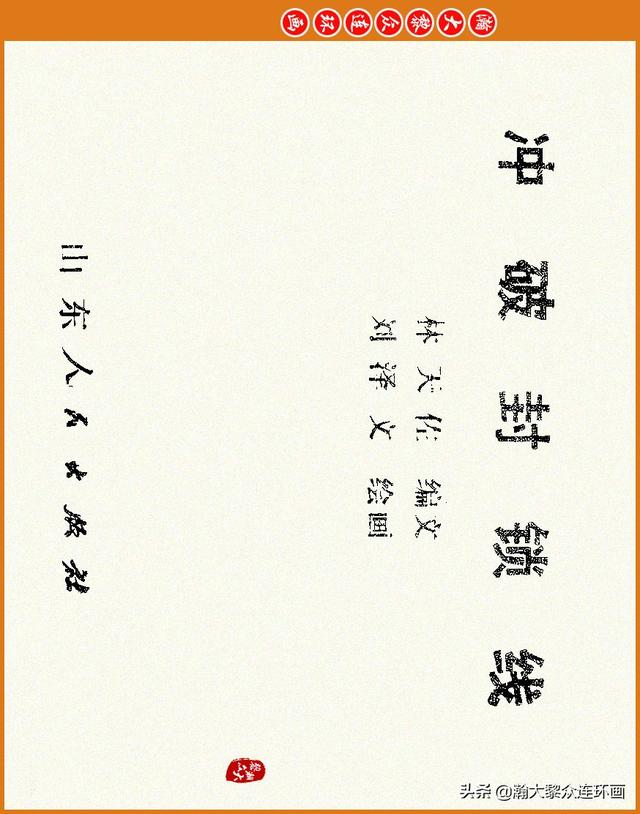 瀚大黎众连环画
冲破封锁线
林天佐 编文
刘泽文 绘画
山东人民出版社
头条 @瀚大黎众连环画